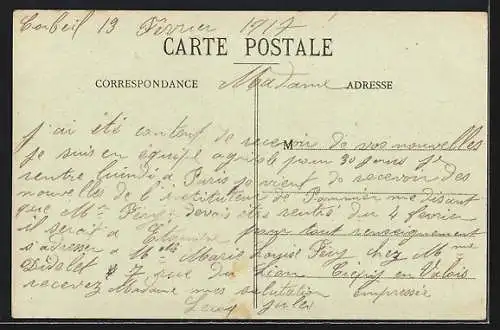 Corbeil 13 Février 1917
CARTE POSTALE
CORRESPONDANCE
ADRESSE
Madame
M
j'ai été content de recevoir de vos nouvelles
je suis en équipe agricole pour 30 jours je
rentre lundi à Paris je vient de recevoir des
nouvelles de l'instituteur de me disant
que Mr Févy devais être rentré du 4 février
il serait à pour tout renseignement
s'adresser à Mlle Marie Louise Févy chez Mme
Didelet 7 rue du Lion Crépy en Valois
recevez Madame mes salutation empressée
Jules